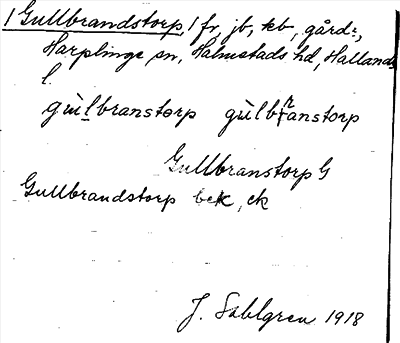 / Gullbrandstorp / fr, jb, kb, gård:,
Harplinge sn, Halmstads hd, Hallands
l.
gùlbranstorp gùlbranstorp
Gullbranstorp G
Gullbrandstorp bek, ek
J. Sahlgren 1918